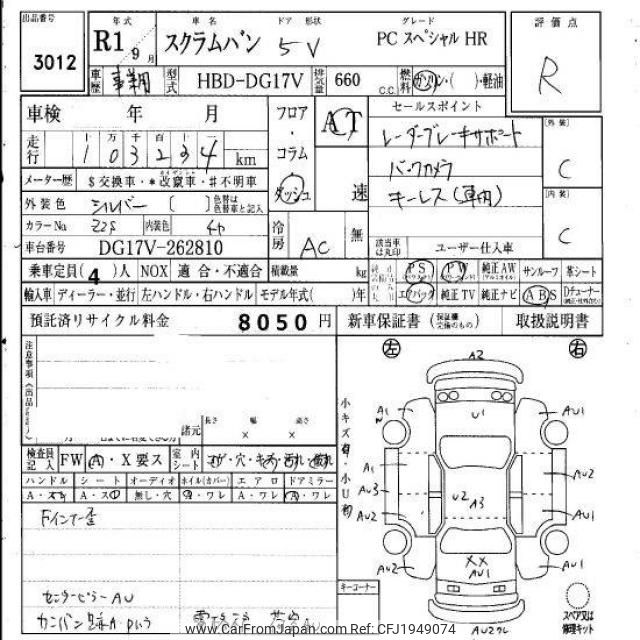 出品番号
3012
年式
R1 9月
車名
スクラムバン
ドア 形状
5V
グレード
PC スペシャル HR
評価点
R
車歴
型式
HBD-DG17V
排気量
660 C.C.
燃料
ガソリン・( )・軽油
車検 年 月
走行
十万千百十一
103234 km
メーター歴 $交換車・*改竄車・#不明車
外装色 シルバー ( ) 色替は色替車と記入
カラーNo Z2S 内装色
車台番号 DG17V-262810
フロア・コラム・ダッシュ
AT
速
冷房
AC
無
セールスポイント
レーダーブレーキサポート
バックカメラ
キーレス(専用)
外装
C
内装
C
該当車は丸印
ユーザー仕入車
乗車定員(4)人 NOX 適合・不適合 積載量 kg
PS PW 純正AW サンルーフ 革シート
輸入車 ディーラー・並行 左ハンドル・右ハンドル モデル年式( )年
エアバッグ 純正TV 純正ナビ ABS Dチューナー
預託済リサイクル料金 8050円
新車保証書(保証継交換のもの) 取扱説明書
注意事項
諸元
長さ 幅 高さ
× ×
検査員記入 FW A・X要ス 室内シート コゲ・穴・キズ・汚れ・破れ
ハンドル シート オーディオ ホイル(カバー) エアロ ドアミラー
A・スレ A・スレ 無し・穴 A・ワレ A・ワレ A・ワレ
Fインナー歪
センターピラーAU
小キズ有・小U有
左 右
A2
A1 U1 AU1
A1 AU2
AU3 U2 A3
AU2 AU1
AU2 XX AU1 AU1
AU2ワレ
キーコーナー
スペア又は修理キット
www.CarFromJapan.com Ref: CFJ1949074